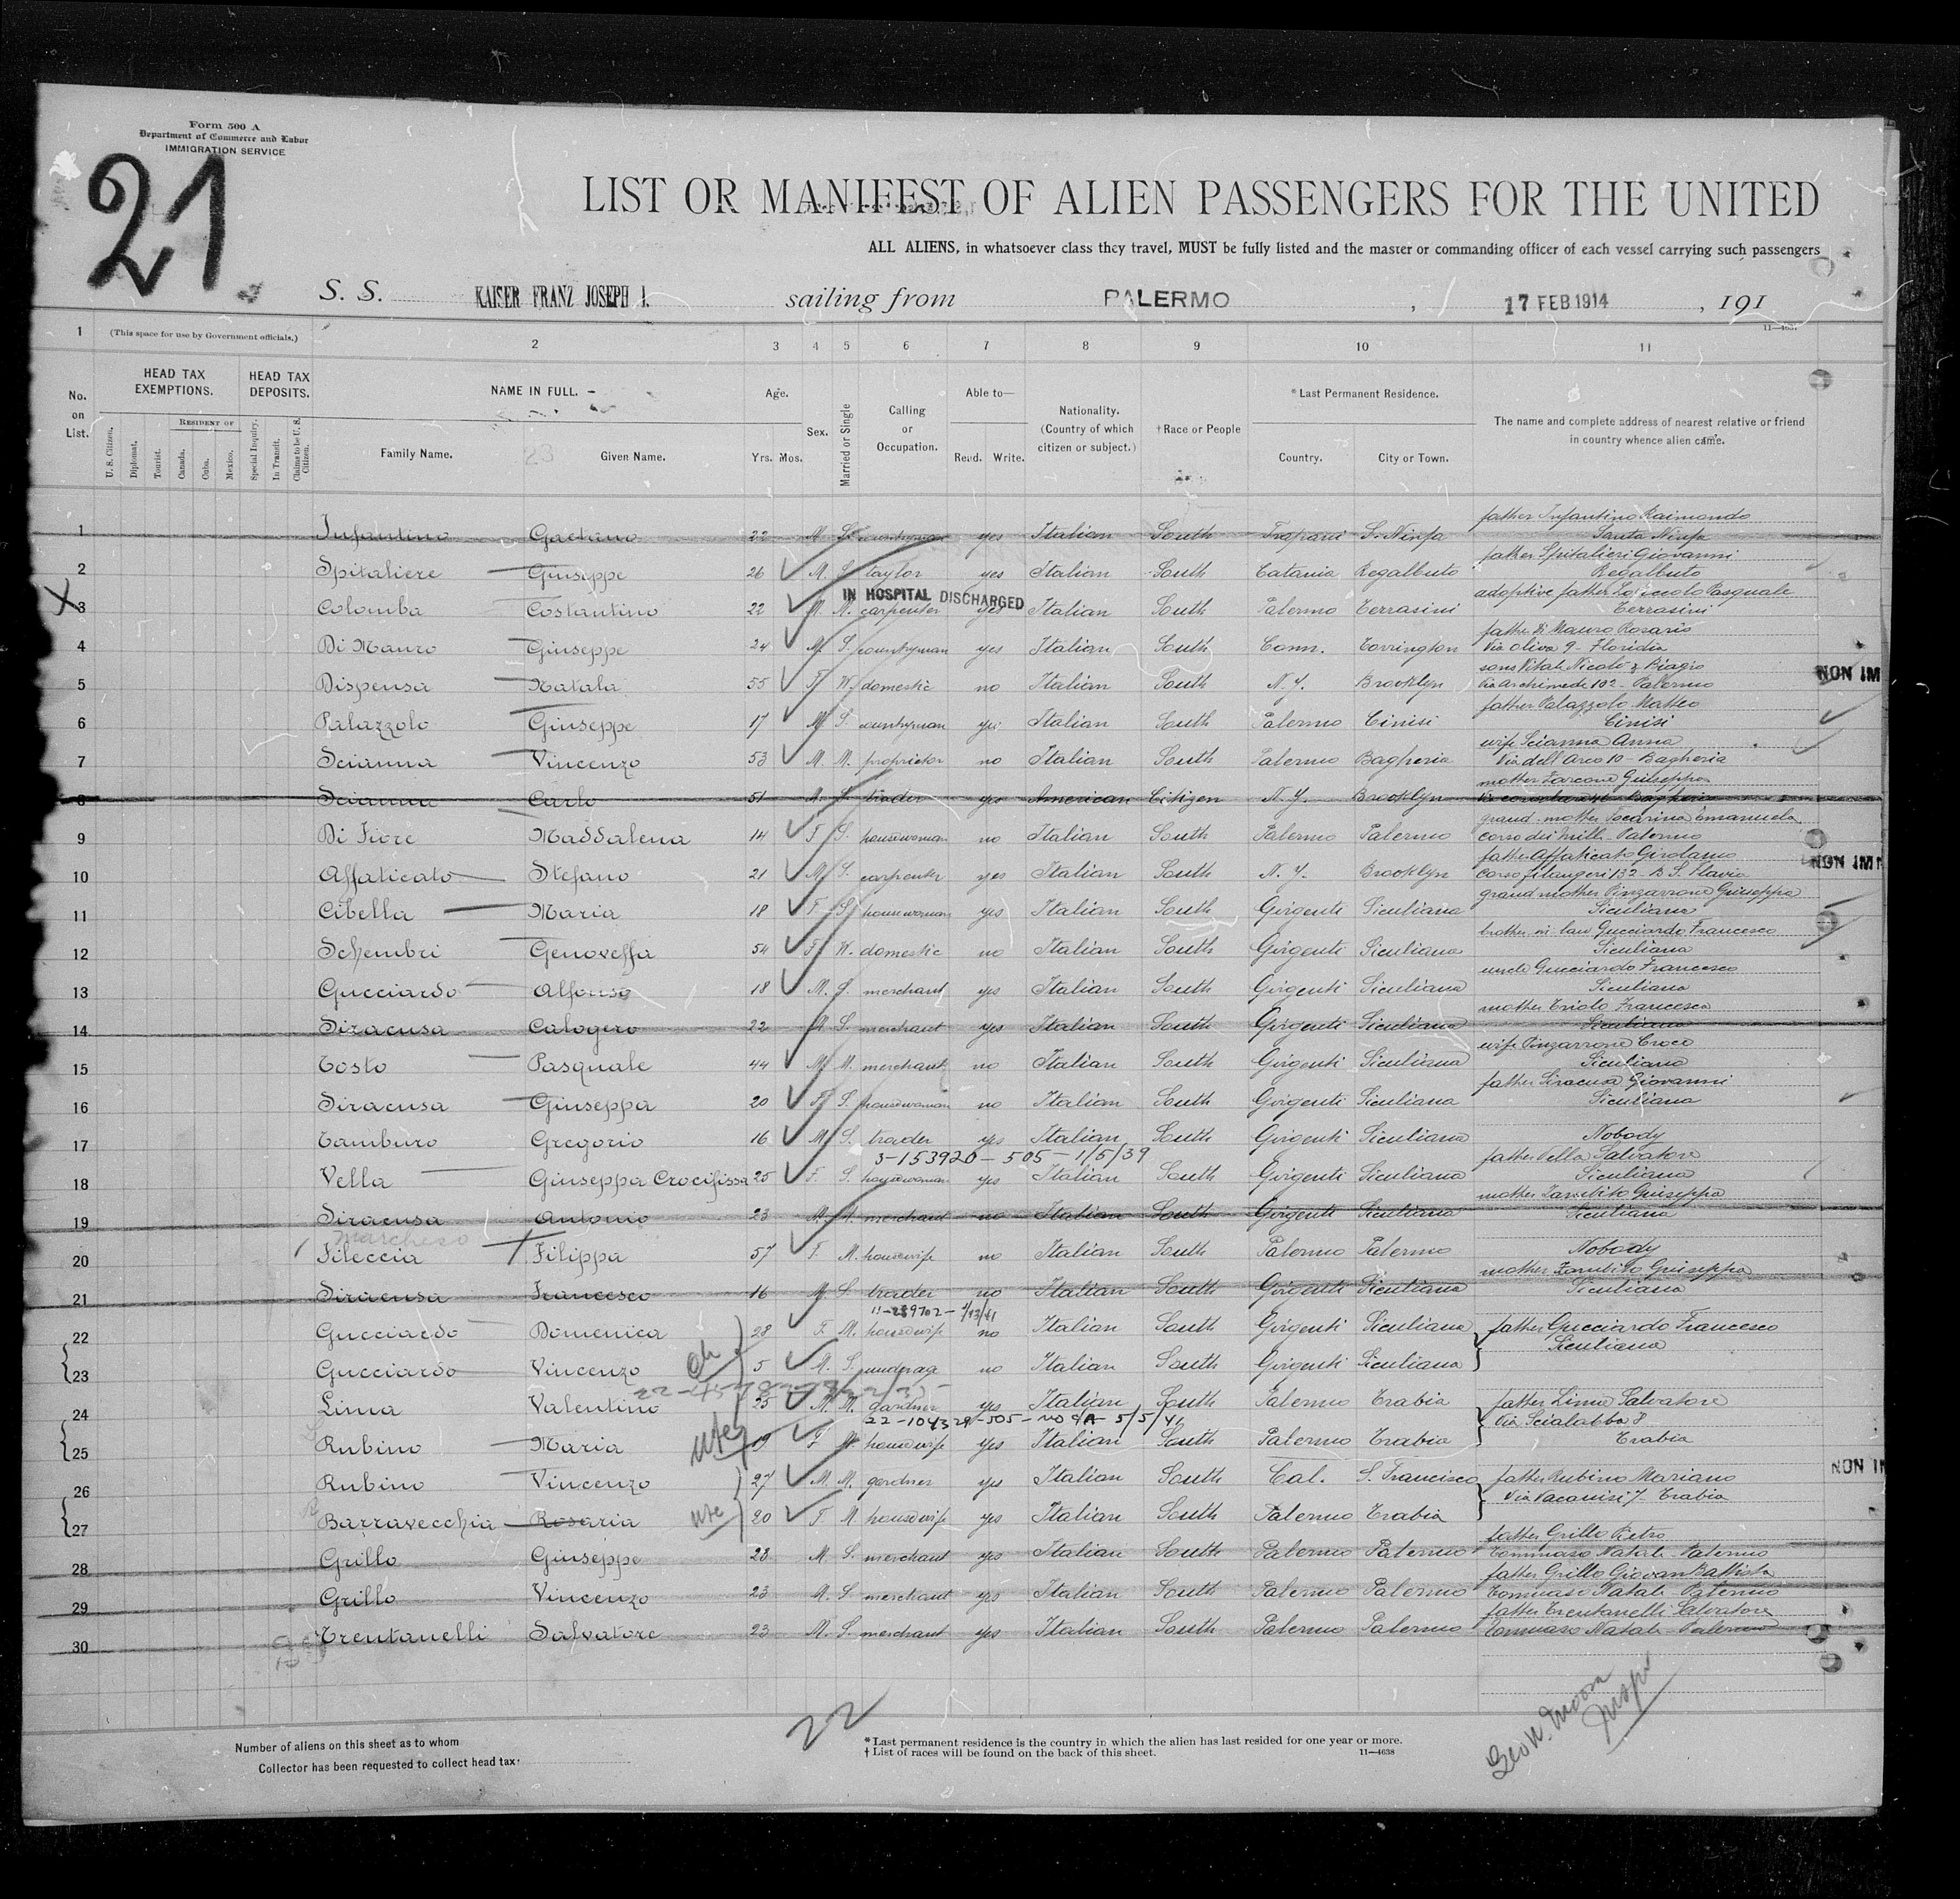 Form 500 A
Department of Commerce and Labor
IMMIGRATION SERVICE
21
LIST OR MANIFEST OF ALIEN PASSENGERS FOR THE UNITED
ALL ALIENS, in whatsoever class they travel, MUST be fully listed and the master or commanding officer of each vessel carrying such passengers
S. S. KAISER FRANZ JOSEPH I. sailing from PALERMO, 17 FEB 1914, 191
11—4637
1 (This space for use by Government officials.) 2 3 4 5 6 7 8 9 10 11
No. on List. HEAD TAX EXEMPTIONS. HEAD TAX DEPOSITS. NAME IN FULL. Age. Sex. Married or Single Calling or Occupation. Able to— Nationality. (Country of which citizen or subject.) †Race or People *Last Permanent Residence. The name and complete address of nearest relative or friend in country whence alien came.
U. S. Citizen. Diplomat. Tourist. RESIDENT OF Canada. Cuba. Mexico. Special Inquiry. In Transit. Claims to be U. S. Citizen. Family Name. 23 Given Name. Yrs. Mos. Read. Write. Country. City or Town.
father Infantino Raimondo
1 Infantino Gaetano 22 M S countryman yes Italian South Trapani S. Ninfa Santa Ninfa
father Spitalieri Giovanni
2 Spitaliere Giuseppe 26 M. S. taylor yes Italian South Catania Regalbuto Regalbuto
IN HOSPITAL DISCHARGED
adoptive father Lo Piccolo Pasquale
X 3 Colomba Costantino 22 M M. carpenter yes Italian South Palermo Terrasini Terrasini
father Di Mauro Rosario
4 Di Mauro Giuseppe 24 M S. countryman yes Italian South Conn. Torrington Via Oliva 9 - Floridia
sons Vitale Nicolò & Biagio
5 Dispensa Natala 55 F W. domestic no Italian South N.Y. Brooklyn Via Archimede 102 - Palermo NON IM
father Palazzolo Matteo
6 Palazzolo Giuseppe 17 M S. countryman yes Italian South Palermo Cinisi Cinisi
wife Scianna Anna
7 Scianna Vincenzo 53 M. M. proprietor no Italian South Palermo Bagheria Via dell'Arco 10 - Bagheria
mother Giuseppa
8 Scianna Carlo 51 M. S. trader yes American Citizen N.Y. Brooklyn Bagheria
grand-mother Emanuela
9 Di Fiore Maddalena 14 F S. housewoman no Italian South Palermo Palermo Corso dei Mille - Palermo
father Affaticato Girolamo
10 Affaticato Stefano 21 M S. carpenter yes Italian South N.Y. Brooklyn Corso Filangeri 132 - B S. Flavia NON IM
grand mother Pinzarrone Giuseppa
11 Cibella Maria 18 F S. housewoman yes Italian South Girgenti Siculiana Siculiana
brother in law Gucciardo Francesco
12 Schembri Genoveffa 54 F W. domestic no Italian South Girgenti Siculiana Siculiana
uncle Gucciardo Francesco
13 Gucciardo Alfonso 18 M. S. merchant yes Italian South Girgenti Siculiana Siculiana
mother Triolo Francesca
14 Siracusa Calogero 22 M S. merchant yes Italian South Girgenti Siculiana Siculiana
wife Pinzarrone Croce
15 Tosto Pasquale 44 M M. merchant no Italian South Girgenti Siculiana Siculiana
father Siracusa Giovanni
16 Siracusa Giuseppa 20 F S. housewoman no Italian South Girgenti Siculiana Siculiana
17 Tamburo Gregorio 16 M S. trader yes Italian South Girgenti Siculiana Nobody
3-153920-505-1/5/39
father Vella Salvatore
18 Vella Giuseppa Crocifissa 25 F. S. housewoman yes Italian South Girgenti Siculiana Siculiana
mother Zambito Giuseppa
19 Siracusa Antonio 23 M. merchant no Italian South Girgenti Siculiana Siculiana
Marcheso
20 Fileccia Filippa 57 F. M. housewife no Italian South Palermo Palermo Nobody
mother Zambito Giuseppa
21 Siracusa Francesco 16 M. S. trader no Italian South Girgenti Siculiana Siculiana
22 Gucciardo Domenica 28 F. M. housewife no Italian South Girgenti Siculiana father Gucciardo Francesco
Siculiana
23 Gucciardo Vincenzo ch 5 M. S. underage no Italian South Girgenti Siculiana
24 Lima Valentino 25 M. M. gardner yes Italian South Palermo Trabia father Lima Salvatore
22-104329-505-no c/A-5/5/41
Via Scialabba 8
25 Rubino Maria wife 19 F M. housewife yes Italian South Palermo Trabia Trabia
26 Rubino Vincenzo 27 M. M. gardner yes Italian South Cal. S. Francisco father Rubino Mariano NON IM
Via Vacanisi 7 - Trabia
27 Barravecchia Rosaria wife 20 F M housewife yes Italian South Palermo Trabia
father Grillo Pietro
28 Grillo Giuseppe 23 M. S. merchant yes Italian South Palermo Palermo Tommaso Natale - Palermo
father Grillo Giovan Battista
29 Grillo Vincenzo 23 M. S. merchant yes Italian South Palermo Palermo Tommaso Natale - Palermo
father Trentanelli Salvatore
30 Trentanelli Salvatore 23 M. S. merchant yes Italian South Palermo Palermo Tommaso Natale - Palermo
22
Geo W. Moon
Insp
Number of aliens on this sheet as to whom
Collector has been requested to collect head tax
*Last permanent residence is the country in which the alien has last resided for one year or more.
†List of races will be found on the back of this sheet. 11—4638